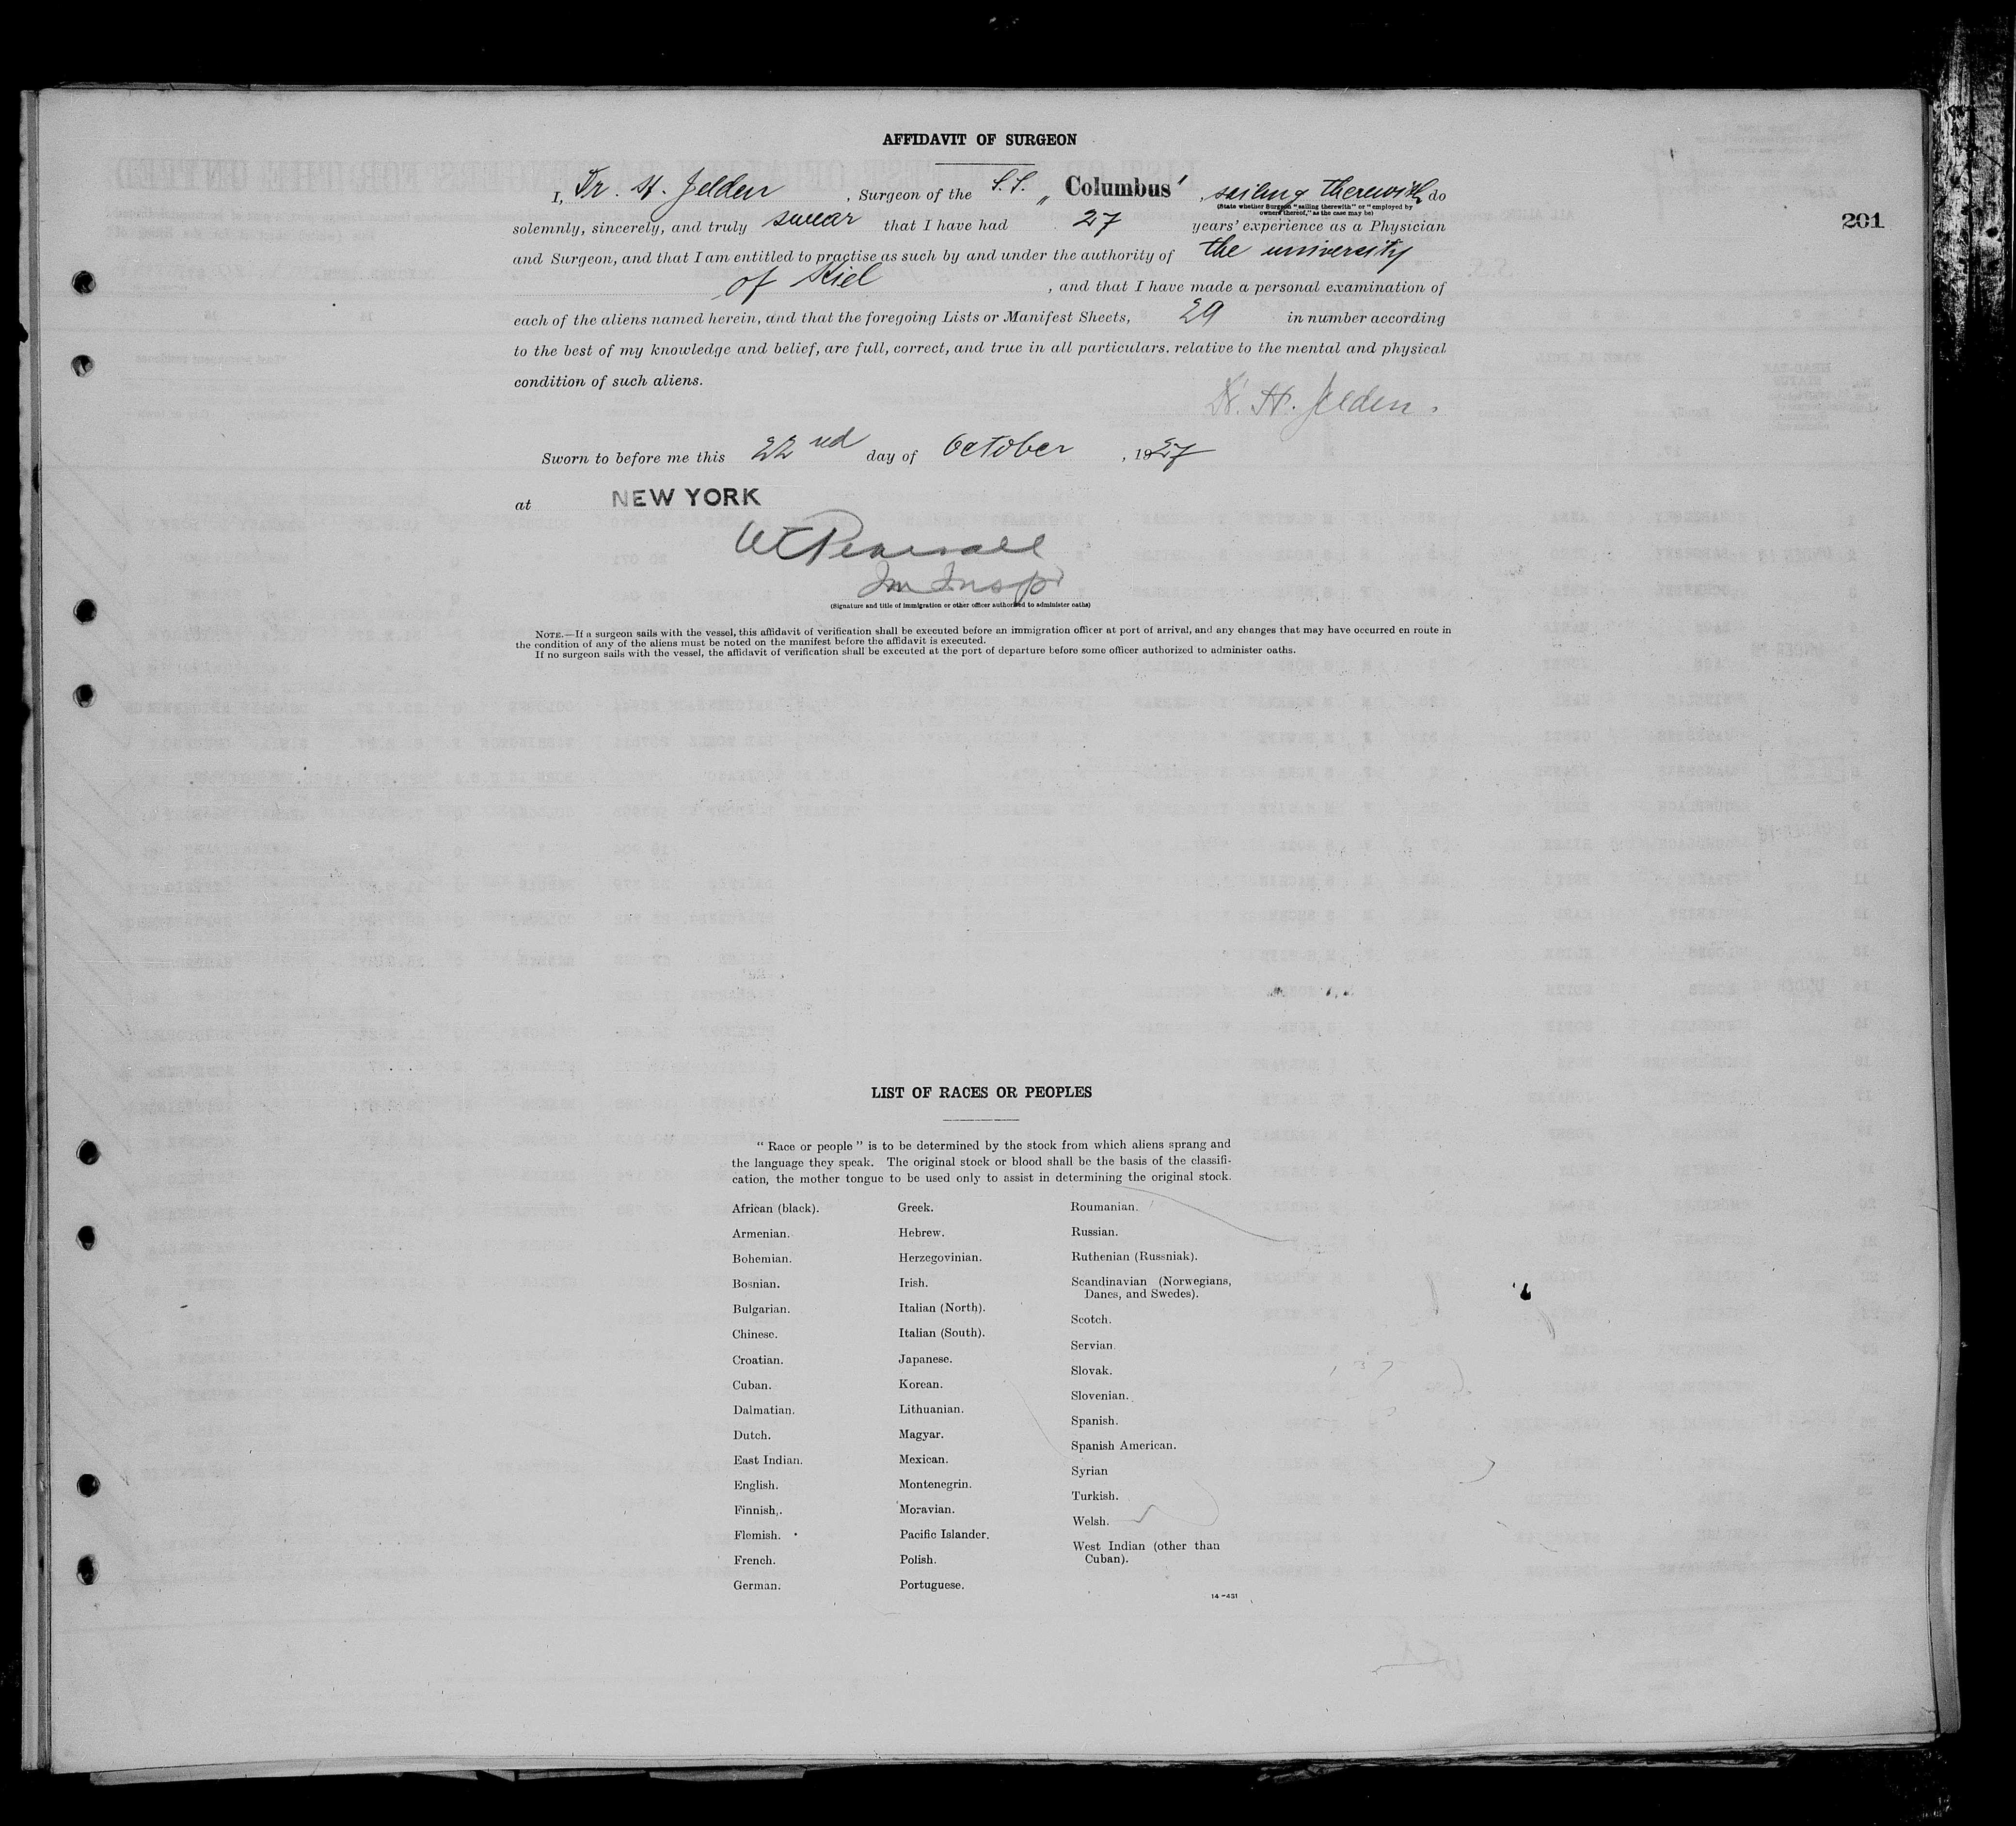 AFFIDAVIT OF SURGEON
I, Dr. H. Jelden, Surgeon of the S.S. „Columbus", sailing therewith, do
(State whether Surgeon "sailing therewith" or "employed by
owners thereof," as the case may be)
201
solemnly, sincerely, and truly swear that I have had 27 years' experience as a Physician
and Surgeon, and that I am entitled to practise as such by and under the authority of the university
of Kiel, and that I have made a personal examination of
each of the aliens named herein, and that the foregoing Lists or Manifest Sheets, 29 in number according
to the best of my knowledge and belief, are full, correct, and true in all particulars. relative to the mental and physical
condition of such aliens.
Dr. H. Jelden.
Sworn to before me this 22nd day of October, 1927
at NEW YORK
Im Insp
(Signature and title of immigration or other officer authorized to administer oaths)
NOTE.—If a surgeon sails with the vessel, this affidavit of verification shall be executed before an immigration officer at port of arrival, and any changes that may have occurred en route in
the condition of any of the aliens must be noted on the manifest before the affidavit is executed.
If no surgeon sails with the vessel, the affidavit of verification shall be executed at the port of departure before some officer authorized to administer oaths.
LIST OF RACES OR PEOPLES
"Race or people" is to be determined by the stock from which aliens sprang and
the language they speak. The original stock or blood shall be the basis of the classifi-
cation, the mother tongue to be used only to assist in determining the original stock.
African (black).
Armenian.
Bohemian.
Bosnian.
Bulgarian.
Chinese.
Croatian.
Cuban.
Dalmatian.
Dutch.
East Indian.
English.
Finnish.
Flemish.
French.
German.
Greek.
Hebrew.
Herzegovinian.
Irish.
Italian (North).
Italian (South).
Japanese.
Korean.
Lithuanian.
Magyar.
Mexican.
Montenegrin.
Moravian.
Pacific Islander.
Polish.
Portuguese.
Roumanian.
Russian.
Ruthenian (Russniak).
Scandinavian (Norwegians,
Danes, and Swedes).
Scotch.
Servian.
Slovak.
Slovenian.
Spanish.
Spanish American.
Syrian
Turkish.
Welsh.
West Indian (other than
Cuban).
14—451